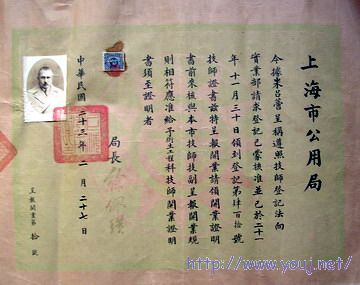 上海市公用局
今據米呂蕾呈稱遵照技師登記法向
實業部請求登記已蒙核准並已於二十一
年十一月三十日領到登記第肆百拾號
技師證書茲特呈報開業請領開業證明
書前來核與本市技師技副呈報開業規
則相符應准給予 工程科技師開業證明
書須至證明者
局長
中華民國二十三年二月二十七日
呈報開業第拾號
http://www.youj.net/